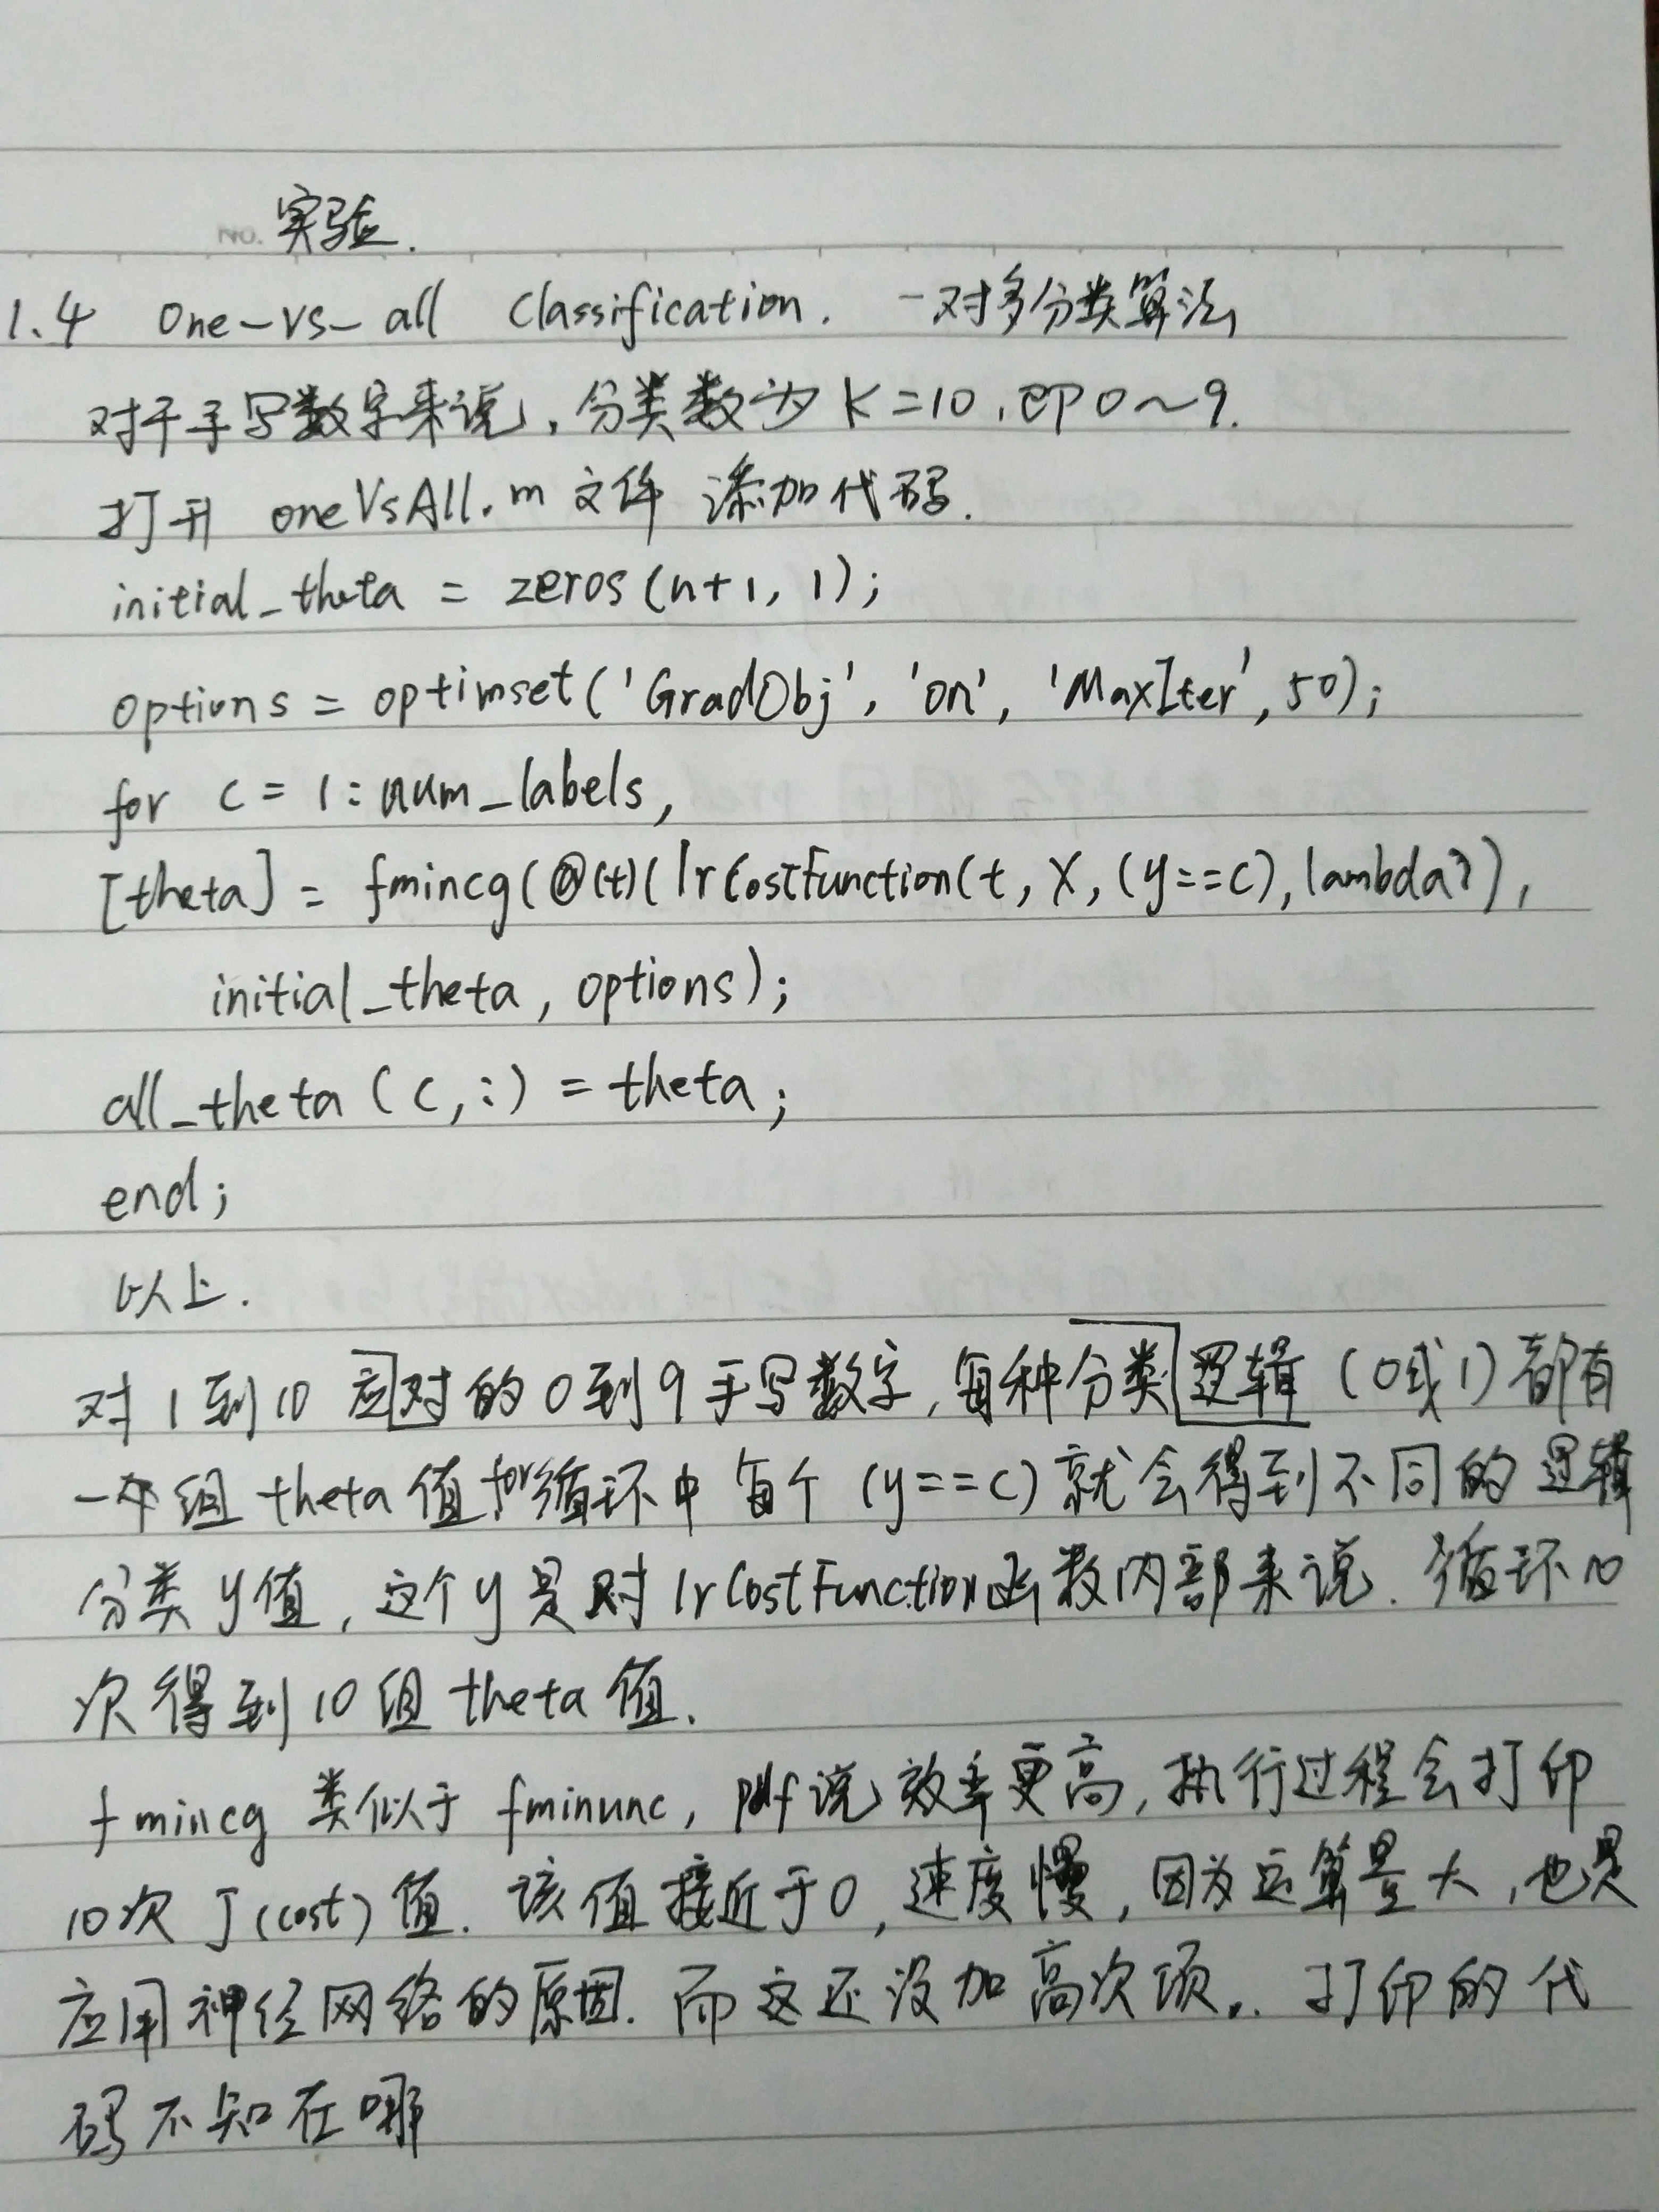 NO. 实验.
1.4 One-vs-all Classification. 一对多分类算法
对于手写数字来说,分类数为 K=10,即0~9.
打开 oneVsAll.m 文件 添加代码.
initial_theta = zeros(n+1, 1);
options = optimset('GradObj', 'on', 'MaxIter', 50);
for c = 1:num_labels,
[theta] = fmincg(@(t)(lrCostFunction(t, X, (y==c), lambda)),
initial_theta, options);
all_theta (c,:) = theta;
end;
以上.
对 1 到 10 应对的 0 到 9 手写数字,每种分类逻辑 (0或1) 都有
一组 theta 值 for循环中 每个 (y==c) 就会得到不同的逻辑
分类 y值,这个y是对 lrCostFunction函数内部来说. 循环10
次得到10组 theta 值.
fmincg 类似于 fminunc, pdf说效率更高,执行过程会打印
10次 J(cost) 值. 该值接近于0,速度慢,因为运算量大,也是
应用神经网络的原因. 而这还没加高次项.. 打印的代
码不知在哪